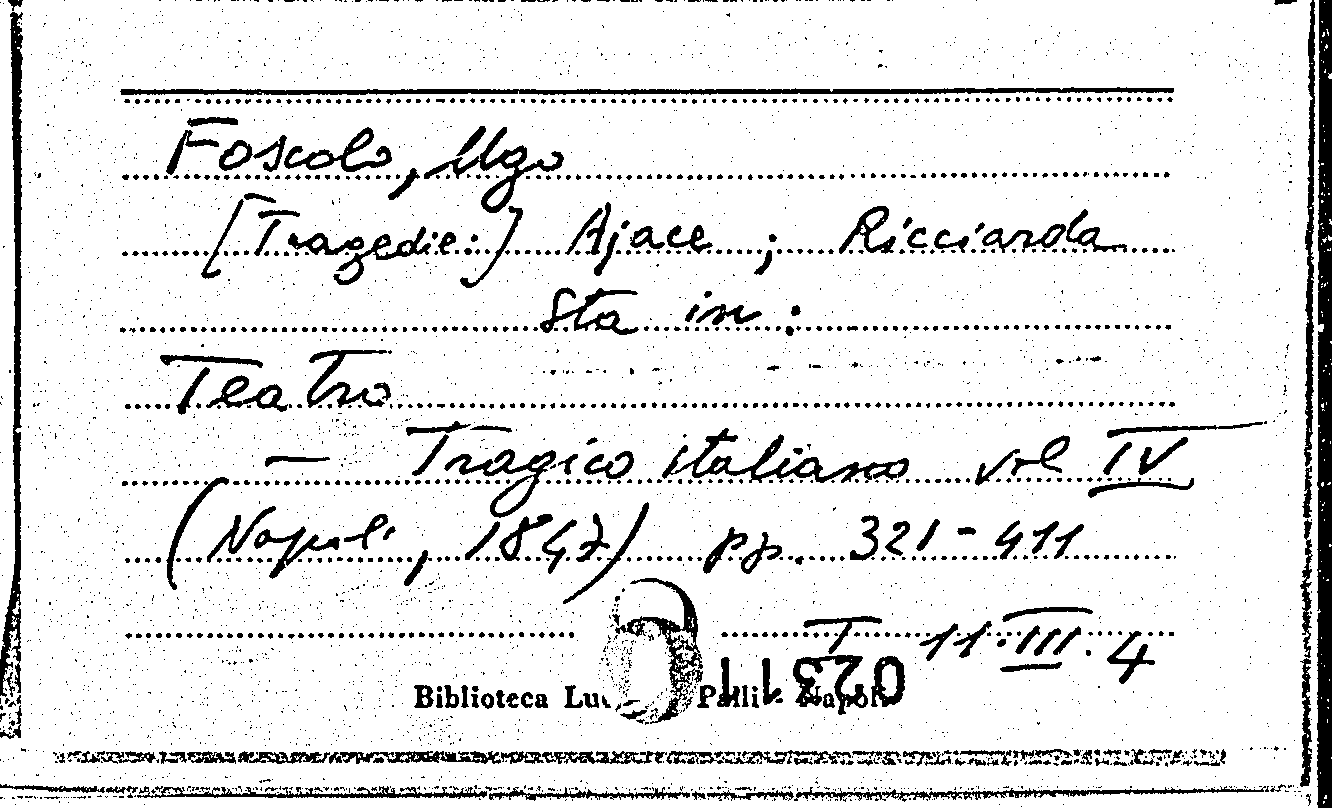 Foscolo, Ugo
[Tragedie:] Ajace ; Ricciarda
Sta in :
Teatro
— Tragico italiano vol IV
(Napoli, 1847) pp. 321-411
T 11.III.4
Biblioteca Palli - Napoli